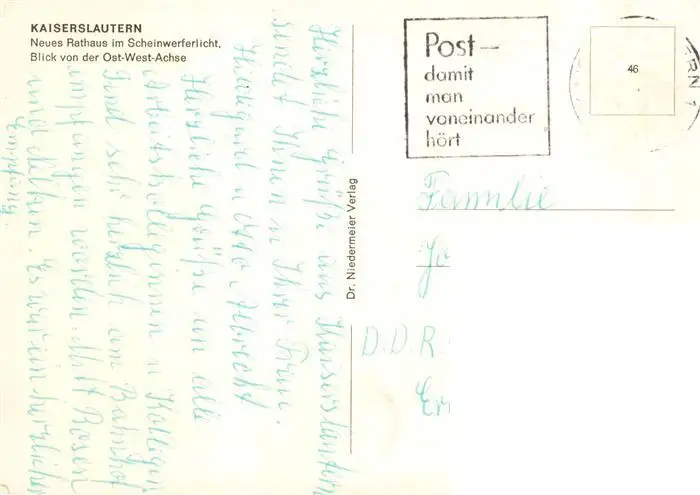 KAISERSLAUTERN
Neues Rathaus im Scheinwerferlicht,
Blick von der Ost-West-Achse
Post-
damit
man
voneinander
hört
46
ERN 1
Dr. Niedermeier Verlag
Familie
D.D.R
Herzliche Grüße aus Kaiserslautern
sendet Ihnen u Ihrer Frau.
Hildegard u Otto Albrecht
Herzliche Grüße an alle
Arbeitskolleginnen u Kollegen
Sind sehr herzlich am Bahnhof
empfangen worden. Mit Rosen
und Nelken. Es war ein herzlicher
Empfang.